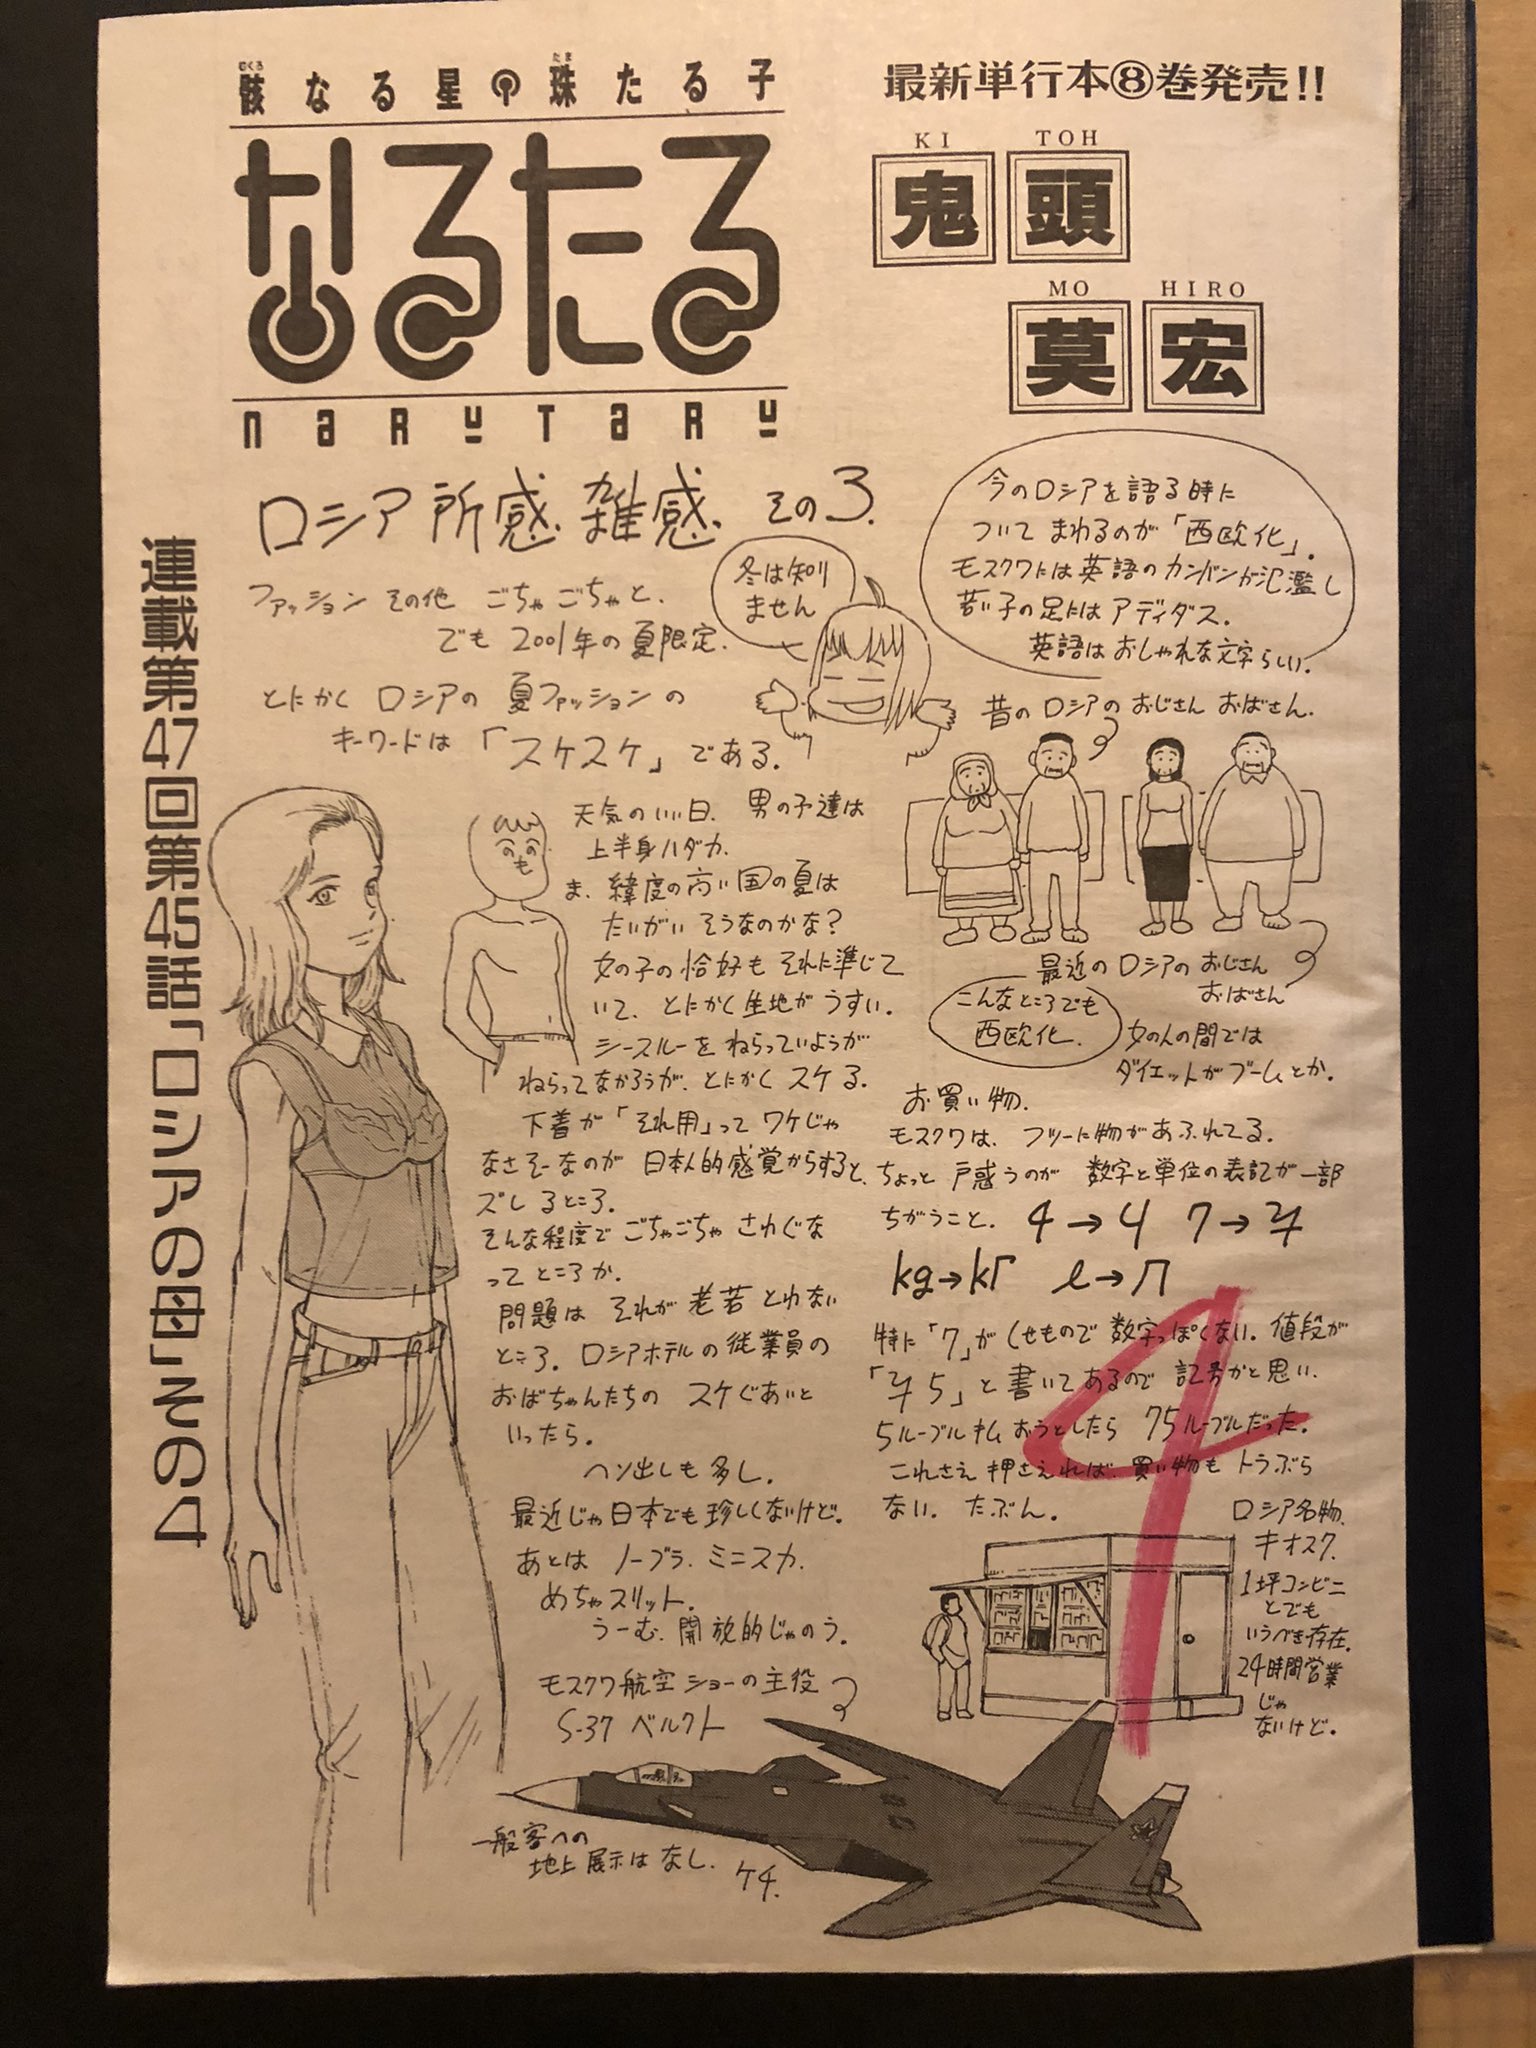 骸なる星の珠たる子
むくろ
たま
なるたる
NARUTARU
最新単行本⑧巻発売!!
KI TOH
鬼頭
MO HIRO
莫宏
連載第47回第45話「ロシアの母」その4
ロシア所感.雑感.その3.
ファッション その他 ごちゃごちゃと.
でも 2001年の夏限定.
冬は知り
ません
とにかく ロシアの 夏ファッションの
キーワードは「スケスケ」である.
天気のいい日. 男の子達は
上半身ハダカ.
ま、緯度の高い国の夏は
たいがい そうなのかな?
女の子の恰好も それに準じて
いて、とにかく生地が うすい.
シースルーを ねらっていようが
ねらってなかろうが、とにかく スケる.
下着が「それ用」って ワケじゃ
なさそーなのが 日本人的感覚からすると、
ズレるところ.
そんな程度で ごちゃごちゃ さわぐな
ってところか.
問題は それが 老若 とわない
ところ. ロシアホテルの従業員の
おばちゃんたちの スケぐあいと
いったら.
ヘソ出しも 多し.
最近じゃ日本でも珍しくないけど.
あとは ノーブラ. ミニスカ.
めちゃスリット.
うーむ. 開放的じゃのう.
モスクワ航空ショーの主役
S-37 ベルクト
一般客への
地上展示は なし. ケチ.
今のロシアを語る時に
ついて まわるのが「西欧化」.
モスクワには英語のカンバンが氾濫し
若い子の足にはアディダス.
英語は おしゃれな文字らしい.
昔の ロシアの おじさん おばさん.
最近の ロシアの おじさん
おばさん
こんなところでも
西欧化.
女の人の間では
ダイエットがブームとか.
お買い物.
モスクワは、フツーに物があふれてる.
ちょっと 戸惑うのが 数字と単位の表記が一部
ちがうこと. 4→Ч 7→
kg→кг ℓ→л
特に「7」が くせもので 数字っぽくない. 値段が
「75」と書いてあるので 記号かと思い.
5ルーブル払おうとしたら 75ルーブルだった.
これさえ 押さえれば、買い物も トラぶら
ない. たぶん.
ロシア名物.
キオスク.
1坪コンビニ
とでも
いうべき存在.
24時間営業
じゃ
ないけど.
9